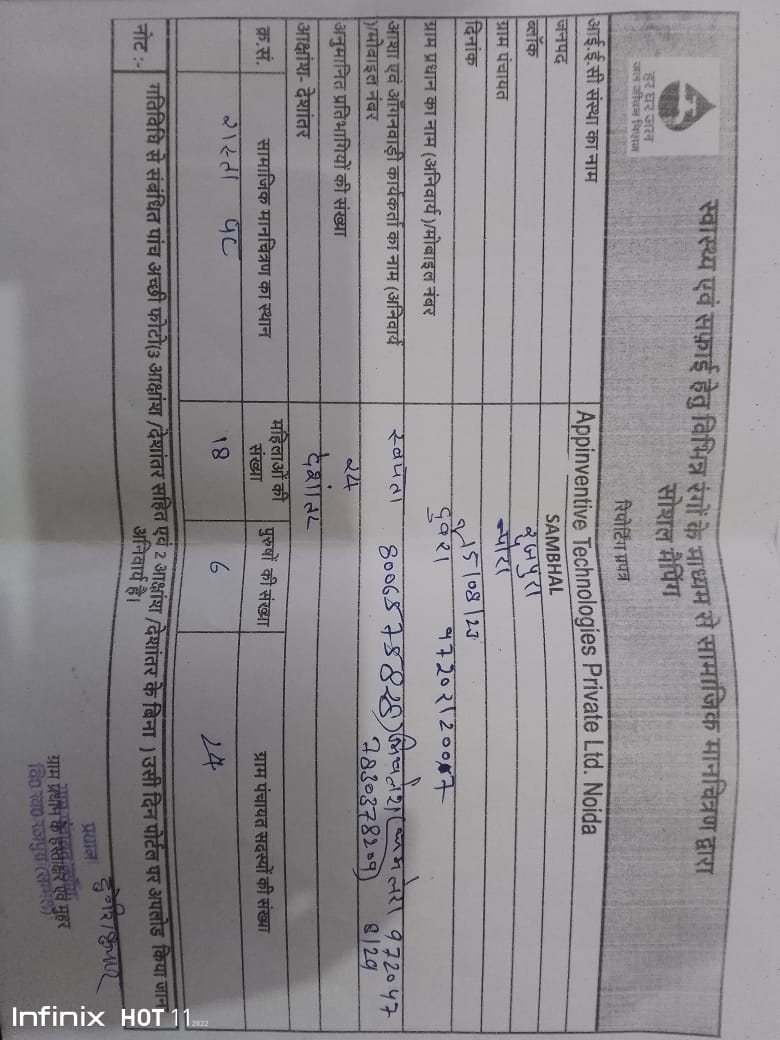 हर घर जल
जल जीवन मिशन
स्वास्थ्य एवं सफाई हेतु विभिन्न रंगों के माध्यम से सामाजिक मानचित्रण द्वारा
सोशल मैपिंग
रिपोर्टिंग प्रपत्र
आई.ई.सी संस्था का नाम Appinventive Technologies Private Ltd. Noida
जनपद SAMBHAL
ब्लॉक रजपुरा
ग्राम पंचायत
दिनांक 5/08/23
ग्राम प्रधान का नाम (अनिवार्य)/मोबाइल नंबर
आशा एवं आँगनवाड़ी कार्यकर्ता का नाम (अनिवार्य
)/मोबाइल नंबर
अनुमानित प्रतिभागियों की संख्या २4
आक्षांश- देशांतर देशांतर
क्र.सं. सामाजिक मानचित्रण का स्थान महिलाओं की संख्या पुरुषों की संख्या ग्राम पंचायत सदस्यों की संख्या
रास्ता पर 18 6
नोट :- गतिविधि से संबंधित पांच अच्छी फोटो(3 आक्षांश /देशांतर सहित एवं 2 आक्षांश /देशांतर के बिना ) उसी दिन पोर्टल पर अपलोड किया जाना
अनिवार्य है।
प्रधान
ग्राम प्रधान के हस्ताक्षर एवं मुहर
Infinix HOT 11 2022